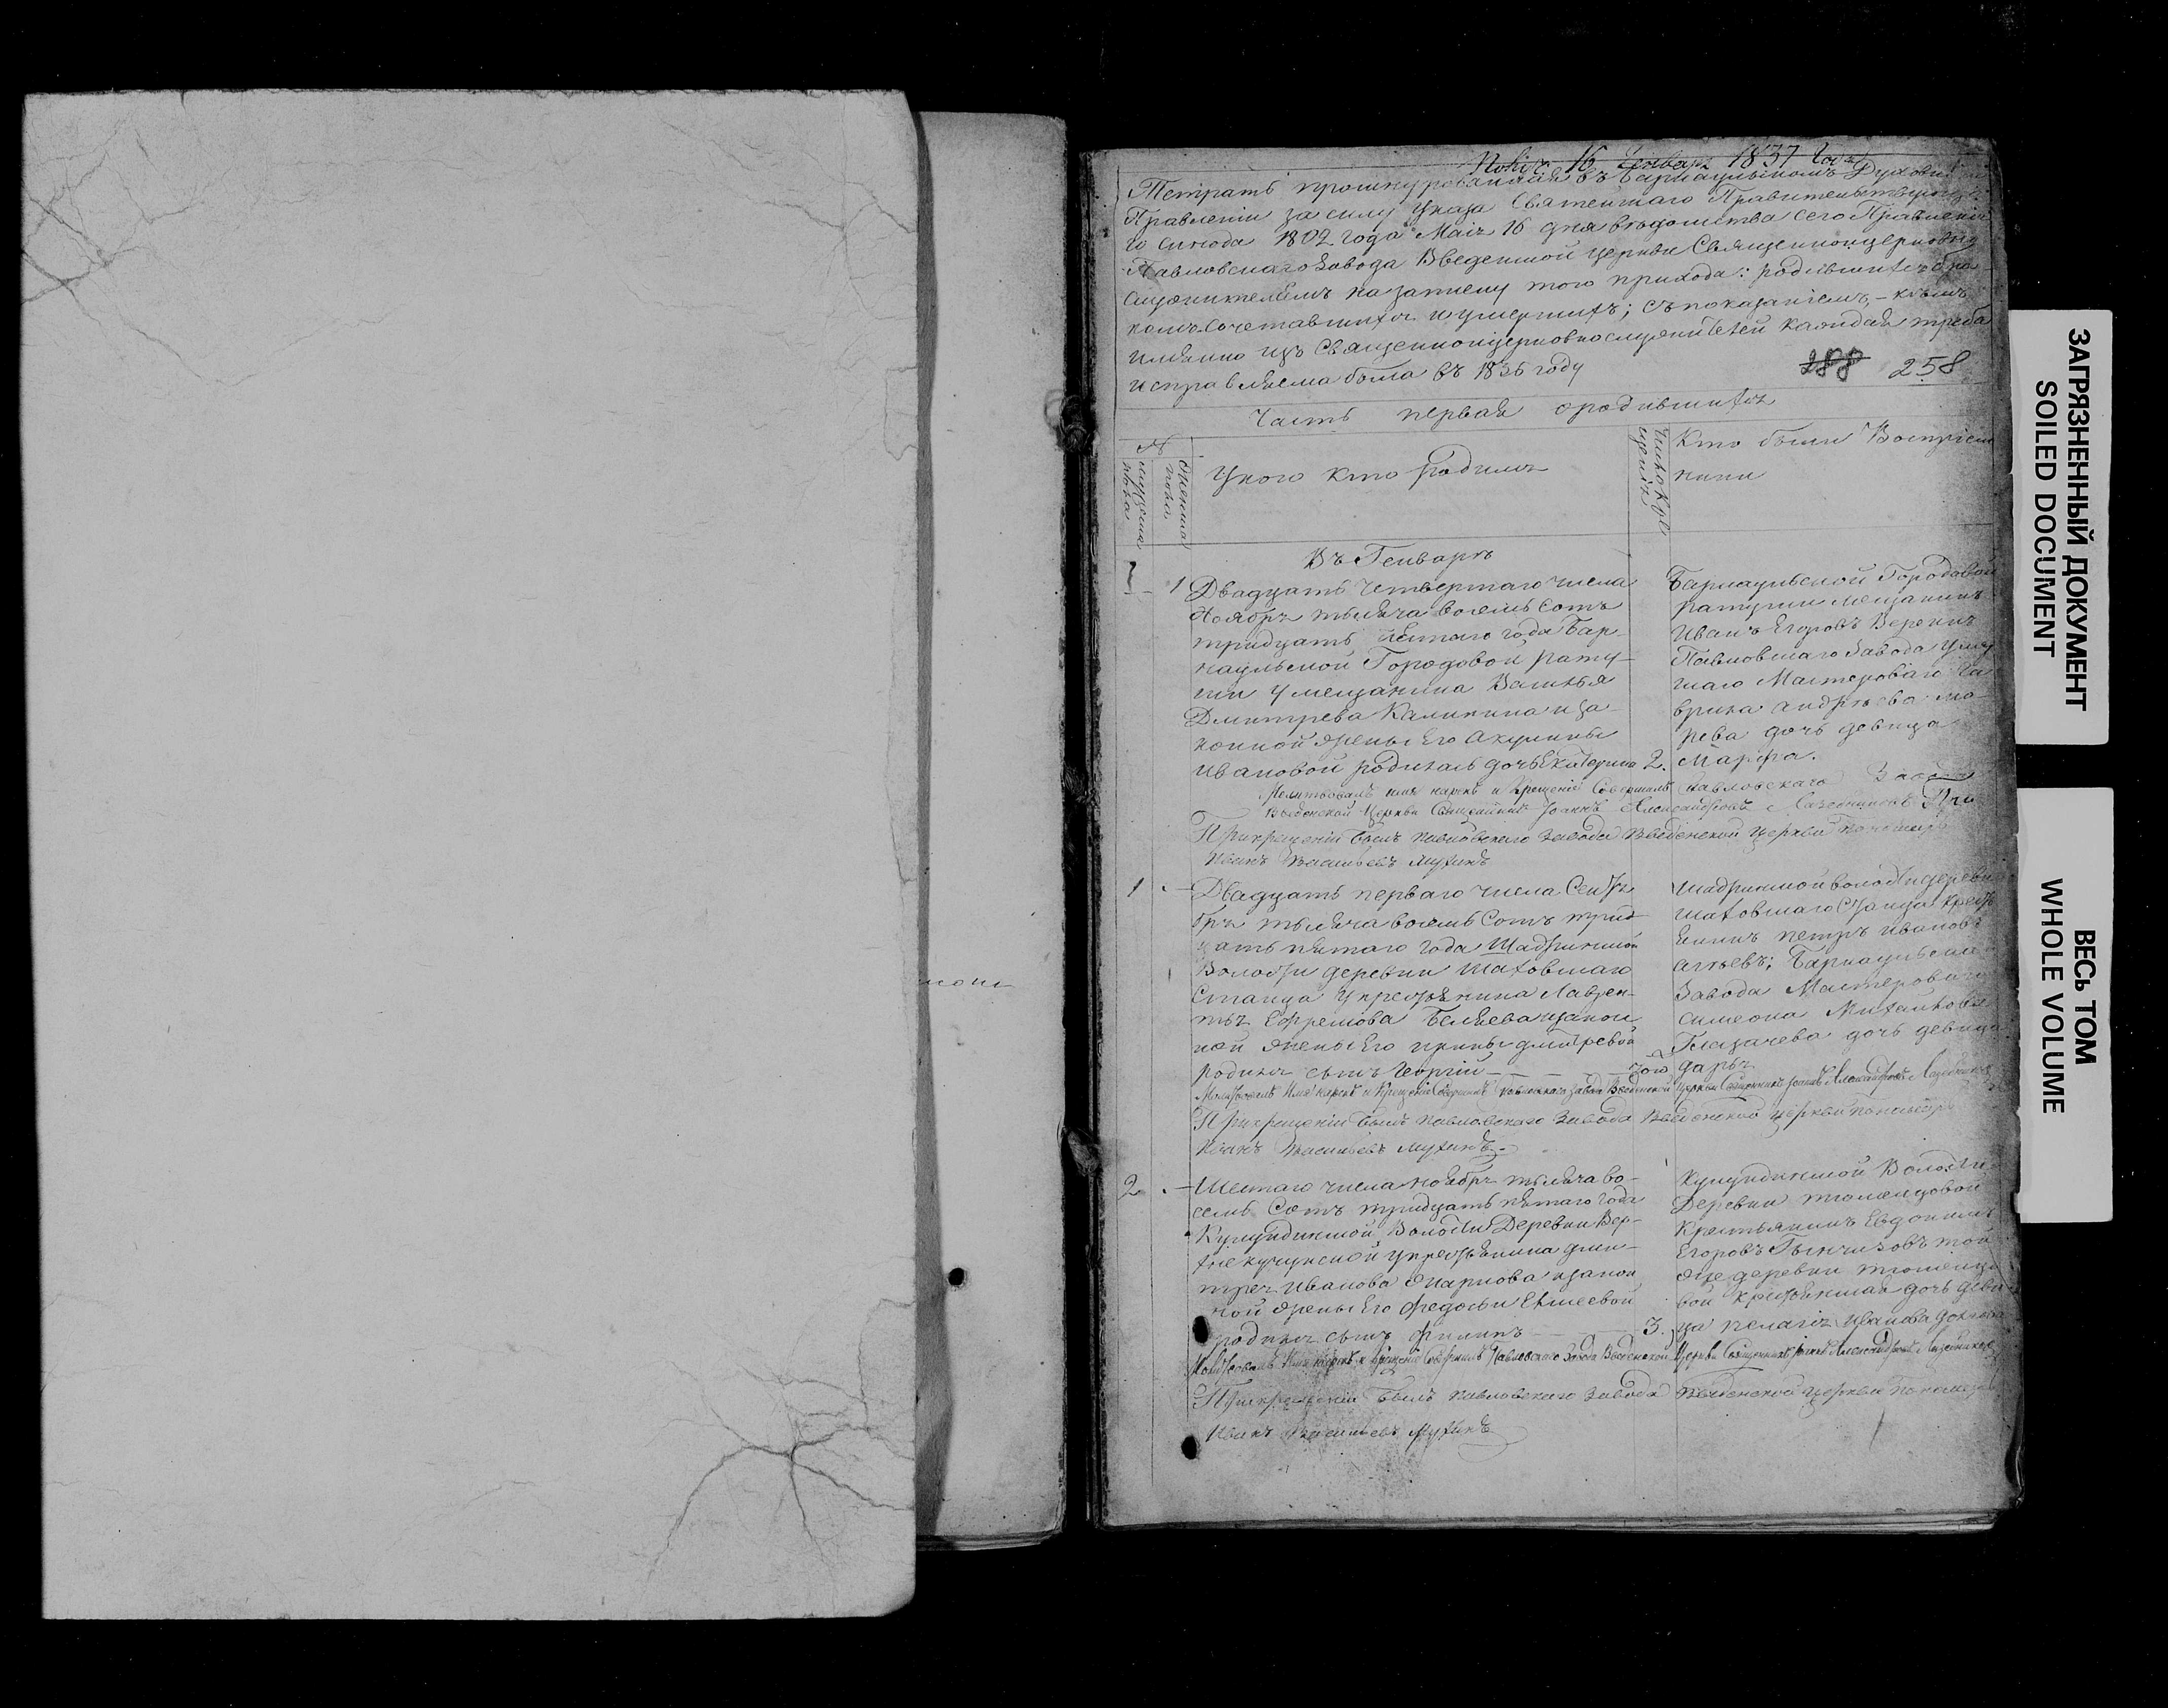 16 Генваря 1837 Года
Тетрать прошнурованная въ Барнаульскомъ Духовн
Правлении за силу Указа Святейшаго Правительствующ
го синода 1802 года Маія 16 дня ведомства сего Правления
Павловскаго Завода Введенской церкви Священноцерковно
служителямъ на записку того прихода: родившихся бра
комъ сочетавшихся и умершихъ; съ показаніемъ, – кемъ
имянно изъ Священноцерковнослужителей каждая треба
исправляема была въ 1836 году
288 258
Часть первая о родившихся
№
мужеска пола
женска пола
У кого кто родился
Кто были Восприем
ники
Въ Генваре
1 Двадцать Четвертаго числа
Ноября тысяча восемь сотъ
тридцать пятаго года Бар-
наульской Городовой рату-
ши у мещанина Василья
Дмитрева Калинина и за-
конной жены Его Акулины
Ивановой родилась дочь Екатерина 2.
Барнаульской Городовой
ратуши мещанинъ
Иванъ Егоровъ
Павловскаго Завода
шаго Мастероваго Га
врила Андреева
рева дочь девица
Марфа.
Молитвовалъ имя нарекъ и Крещеніе Совершалъ Павловскаго Завода
Введенской Церкви Священникъ Іоаннъ Александровъ
При крещеніи былъ Павловскаго Завода Введенской церкви пономарь
Иванъ Васильевъ Мухинъ
1 Двадцать перваго числа Сентя
бря тысяча восемь Сотъ трид-
цать пятаго года Шадринской
Волости деревни Шаховскаго
Станца у крестьянина Лаврен-
тья Ефремова Беляева и закон
ной жены Его ирины дмитревой
родился сынъ Георгій
Шадринской волости деревни
Шаховскаго Станца крест
янинъ петръ Иванов
Барнаульска
Завода Мастероваго
симеона Михайлова
дочь девица
дарья
Молитвовалъ Имя нарекъ и Крещеніе Совершалъ Павловскаго Завода Введенской Церкви Священникъ Іоаннъ Александровъ
При крещеніи былъ Павловскаго Завода Введенской церкви пономарь
Иванъ Васильевъ Мухинъ.
2 Шестаго числа ноября тысяча во-
семь Сотъ тридцать пятаго года
Кулундинской Волости Деревни Вер-
хнекучукской у крестьянина дми-
трея Иванова и закон
ной жены Его Федосьи
родился сынъ Филипъ 3.
Кулундинской Волости
Деревни тюменцовой
Крестьянинъ Евдокимъ
Егоровъ той
же деревни тюменцо
вой крестьянская дочь деви
ца пелагія Иванова
Молитвовалъ Имя нарекъ и Крещеніе Совершалъ Павловскаго Завода Введенской Церкви Священникъ Іоаннъ Александровъ
При крещеніи былъ Павловскаго Завода Введенской церкви пономарь
Иванъ Васильевъ Мухинъ
ЗАГРЯЗНЕННЫЙ ДОКУМЕНТ
SOILED DOCUMENT
ВЕСЬ ТОМ
WHOLE VOLUME